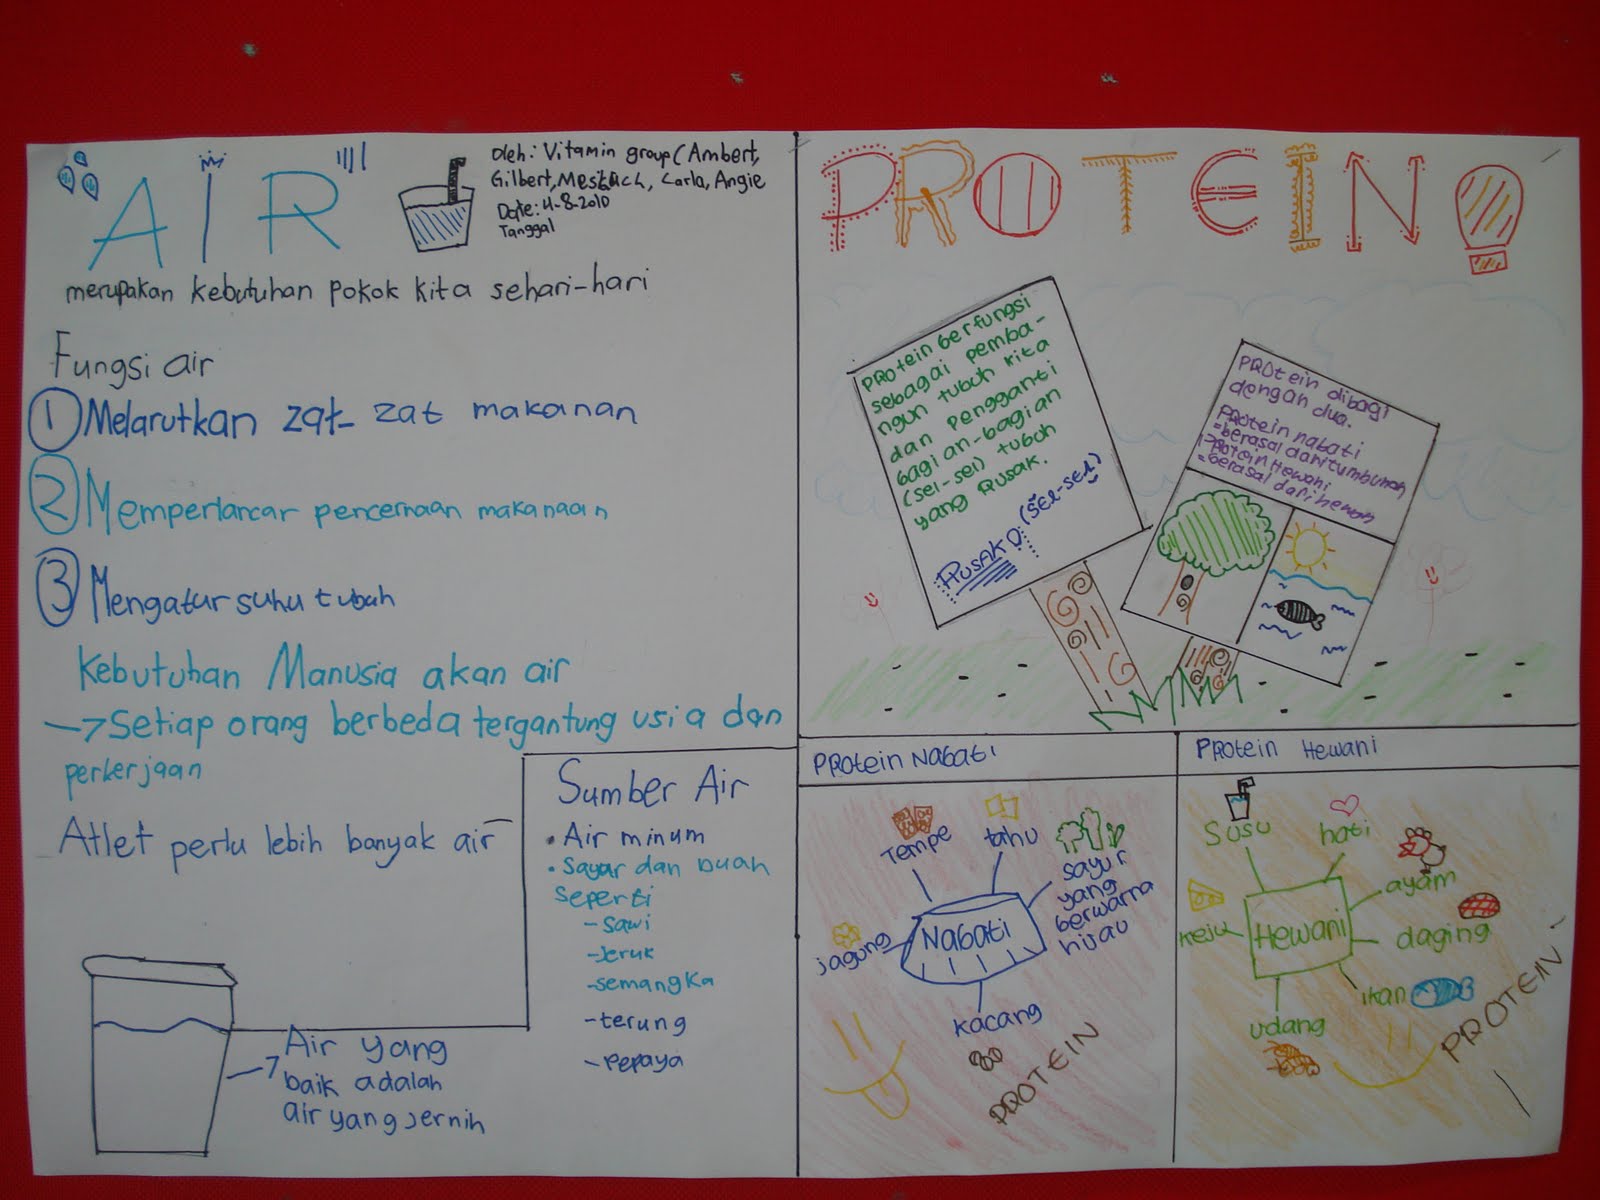 AIR
Oleh: Vitamin group (Ambert,
Gilbert, Mesbach, Carla, Angie
Date: 4-8-2010
Tanggal
merupakan kebutuhan pokok kita sehari-hari
Fungsi air
1 Melarutkan zat-zat makanan
2 Memperlancar pencernaan makanaan
3 Mengatur suhu tubuh
Kebutuhan Manusia akan air
→ Setiap orang berbeda tergantung usia dan
perkerjaan
Atlet perlu lebih banyak air
Sumber Air
• Air minum
• Sayur dan buah
seperti
- Sawi
- Jeruk
- semangka
- terung
- pepaya
Air yang
baik adalah
air yang jernih
PROTEIN
PROtein berfungsi
sebagai pemba-
ngun tubuh kita
dan pengganti
bagian-bagian
(sel-sel) tubuh
yang Rusak.
RUSAK: (SEL-SEL)
PROtein dibagi
dengan dua.
PROtein nabati
=berasal dari tumbuhan
PROtein Hewani
=berasal dari hewan
PROtein Nabati
Tempe
tahu
sayur
yang
berwarna
hijau
jagung
Nabati
kacang
PROTEIN
PROtein Hewani
Susu
hati
ayam
keju
Hewani
daging
ikan
udang
PROTEIN